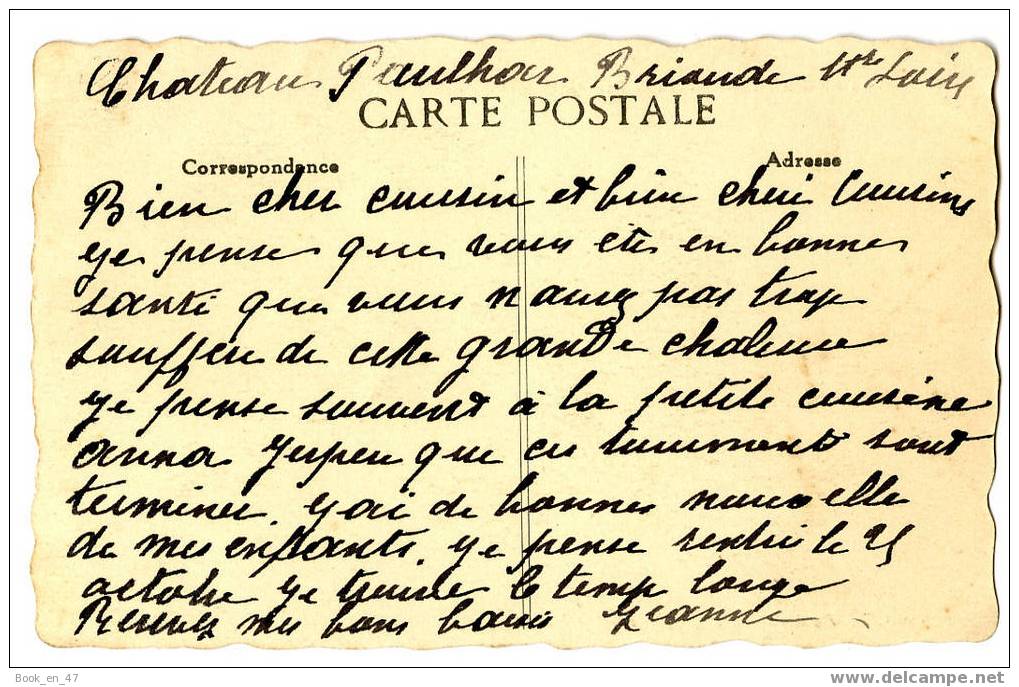 Chateau Paulhac Brioude Hte Loire
CARTE POSTALE
Correspondance
Adresse
Bien cher cousin et bien cheri Cousins
ye pense que vous etes en bonne
santé que vous n'aurez pas trop
souffert de cette grande chaleur
ye pense souvent à la petite cousine
anna J'espere que ces tourments sont
terminer. yai de bonnes nouvelle
de mes enfants. ye pense rentré le 25
octobre ye trouve le temp longe
Recevez mes bons baisers Jeanne
Book_en_47
delcampe.net